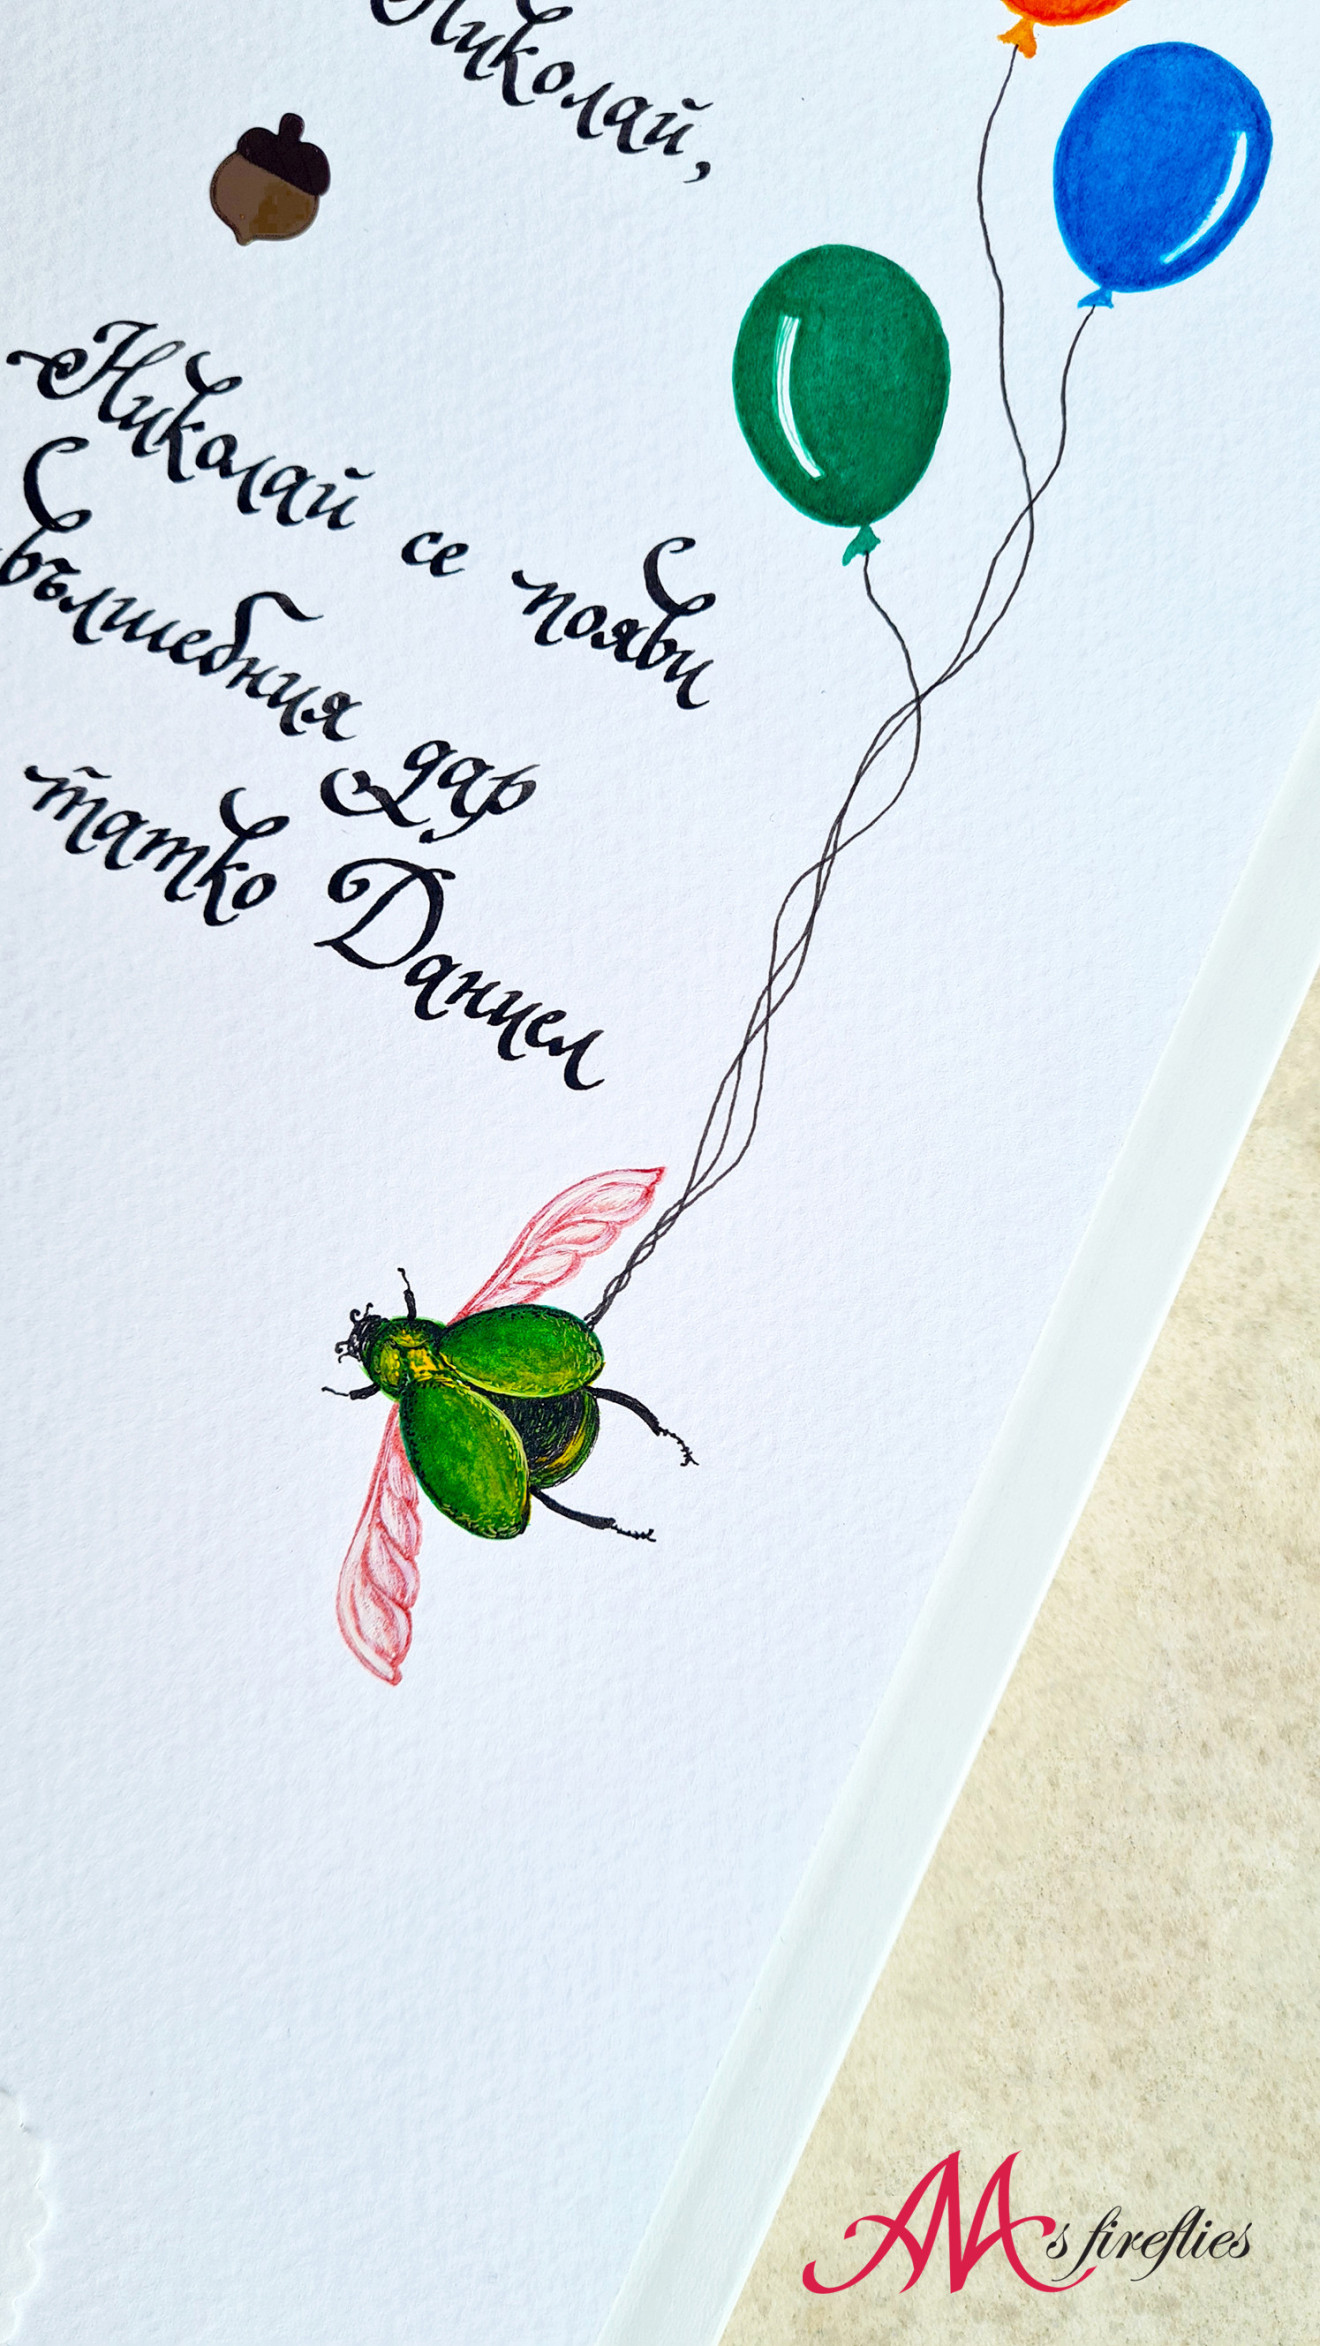 Николай,
Николай се появи
вълшебния дар
татко Даниел
AAA's fireflies